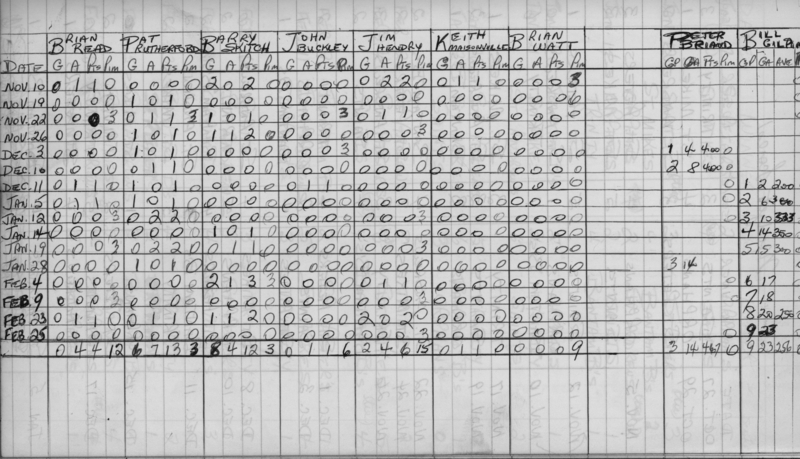 BRIAN READ PAT RUTHERFORD BARRY SKITCH JOHN BUCKLEY JIM HENDRY KEITH MAISONVILLE BRIAN WATT PETER BRIAND BILL
DATE G A Pts Pim G A Pts Pim G A Pts Pim G A Pts Pim G A Pts Pim G A Pts Pim G A Pts Pim GP GA Pts Pim GP GA AVE
NOV. 10 0 1 1 0 0 0 0 0 2 0 2 0 0 0 0 0 0 2 2 0 0 1 1 0 0 0 0 3
NOV. 19 0 0 0 0 1 0 1 0 0 0 0 0 0 0 0 0 0 0 0 0 0 0 0 0 0 0 0 6
NOV. 22 0 0 0 3 0 1 1 3 1 0 1 0 0 0 0 3 0 1 1 0 0 0 0 0 0 0 0 0
NOV. 26 0 0 0 0 1 0 1 0 1 1 2 0 0 0 0 0 0 0 0 3 0 0 0 0 0 0 0 0
DEC. 3 0 0 0 0 1 0 1 0 0 0 0 0 0 0 0 3 0 0 0 0 0 0 0 0 0 0 0 0 1 4 400 0
DEC. 10 0 0 0 0 0 1 1 0 0 0 0 0 0 0 0 0 0 0 0 0 0 0 0 0 0 0 0 0 2 8 400 0
DEC. 11 0 1 1 0 1 0 1 0 0 0 0 0 0 1 1 0 0 0 0 0 0 0 0 0 0 0 0 0 0 1 2 200
JAN. 5 0 1 1 0 1 0 1 0 0 0 0 0 0 0 0 0 0 0 0 0 0 0 0 0 0 0 0 0 0 2 6 300
JAN. 12 0 0 0 3 0 2 2 0 0 0 0 0 0 0 0 0 0 0 0 3 0 0 0 0 0 0 0 0 0 3 10 333
JAN. 14 0 0 0 0 0 0 0 0 1 0 1 0 0 0 0 0 0 0 0 0 0 0 0 0 0 0 0 0 4 14 350
JAN. 19 0 0 0 3 0 2 2 0 0 1 1 0 0 0 0 0 0 0 0 3 0 0 0 0 0 0 0 0 5 15 300
JAN. 28 0 0 0 0 1 0 1 0 0 0 0 0 0 0 0 0 0 0 0 0 0 0 0 0 0 0 0 0 3 14
FEB. 4 0 0 0 0 0 0 0 0 2 1 3 3 0 0 0 0 0 1 1 0 0 0 0 0 0 0 0 0 0 6 17
FEB. 9 0 0 0 3 0 0 0 0 0 0 0 0 0 0 0 0 0 0 0 3 0 0 0 0 0 0 0 0 0 7 18
FEB. 23 0 1 1 0 0 1 1 0 1 1 2 0 0 0 0 0 2 0 2 0 0 0 0 0 0 0 0 0 8 20 250
FEB. 25 0 0 0 0 0 0 0 0 0 0 0 0 0 0 0 0 0 0 0 3 0 0 0 0 0 0 0 0 9 23
0 4 4 12 6 7 13 3 8 4 12 3 0 1 1 6 2 4 6 15 0 1 1 0 0 0 0 9 3 14 467 0 9 23 256 0